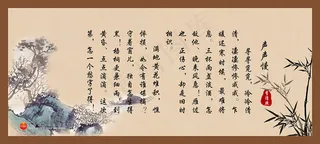 声声慢
寻寻觅觅，冷冷清
清，凄凄惨惨戚戚。乍
暖还寒时候，最难将
息。三杯两盏淡酒，怎
敌他、晚来风急！雁过
也，正伤心，却是旧时
相识。
满地黄花堆积，憔
悴损，如今有谁堪摘？
守着窗儿，独自怎生得
黑！梧桐更兼细雨，到
黄昏、点点滴滴。这次
第，怎一个愁字了得！